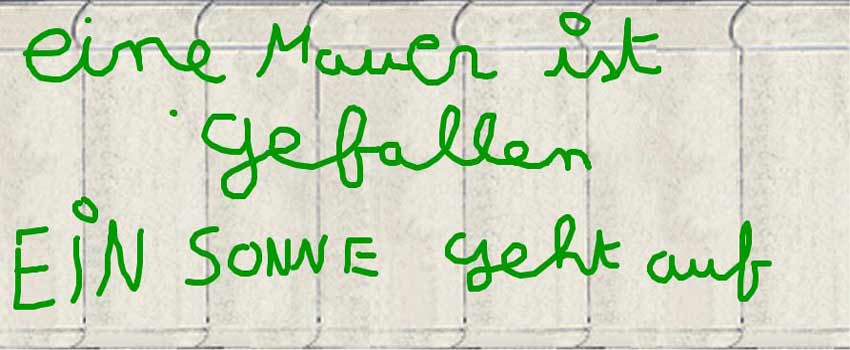 eine Mauer ist
gefallen
EIN SONNE geht auf